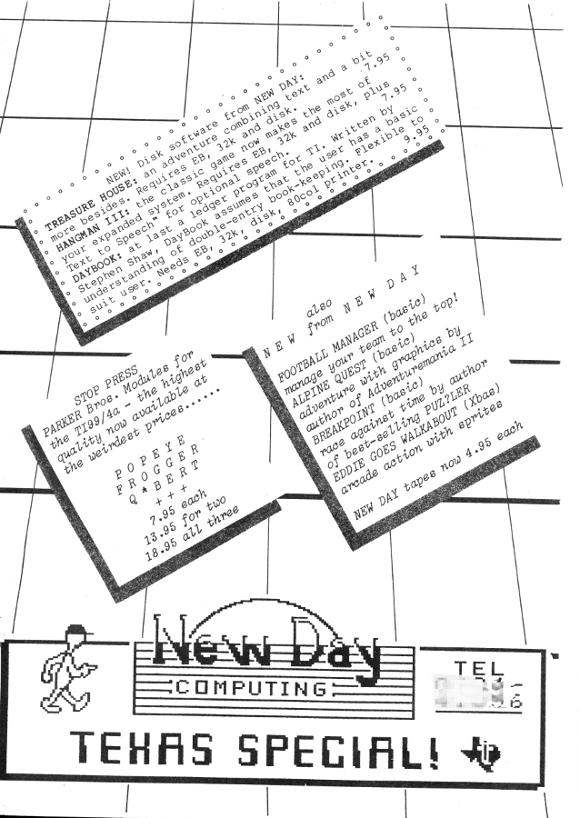 NEW! Disk software from NEW DAY:
TREASURE HOUSE: an adventure combining text and a bit
more besides. Requires EB, 32k and disk. 7.95
HANGMAN III: the classic game now makes the most of
your expanded system. Requires EB, 32k and disk, plus
Text to Speech for optional speech. 7.95
DAYBOOK: at last a ledger program for TI. Written by
Stephen Shaw, DayBook assumes that the user has a basic
understanding of double-entry book-keeping. Flexible to
suit user. Needs EB, 32k, disk, 80col printer. 9.95
also
NEW from NEW DAY
FOOTBALL MANAGER (basic)
manage your team to the top!
ALPINE QUEST (basic)
adventure with graphics by
author of Adventuremania II
BREAKPOINT (basic)
race against time by author
of best-selling PUZ?LER
EDDIE GOES WALKABOUT (Xbas)
arcade action with sprites
NEW DAY tapes now 4.95 each
STOP PRESS
PARKER Bros. Modules for
the TI99/4a - the highest
quality now available at
the weirdest prices......
POPEYE
FROGGER
Q*BERT
+++
7.95 each
13.95 for two
18.95 all three
New Day
COMPUTING
TEL
TEXAS SPECIAL!